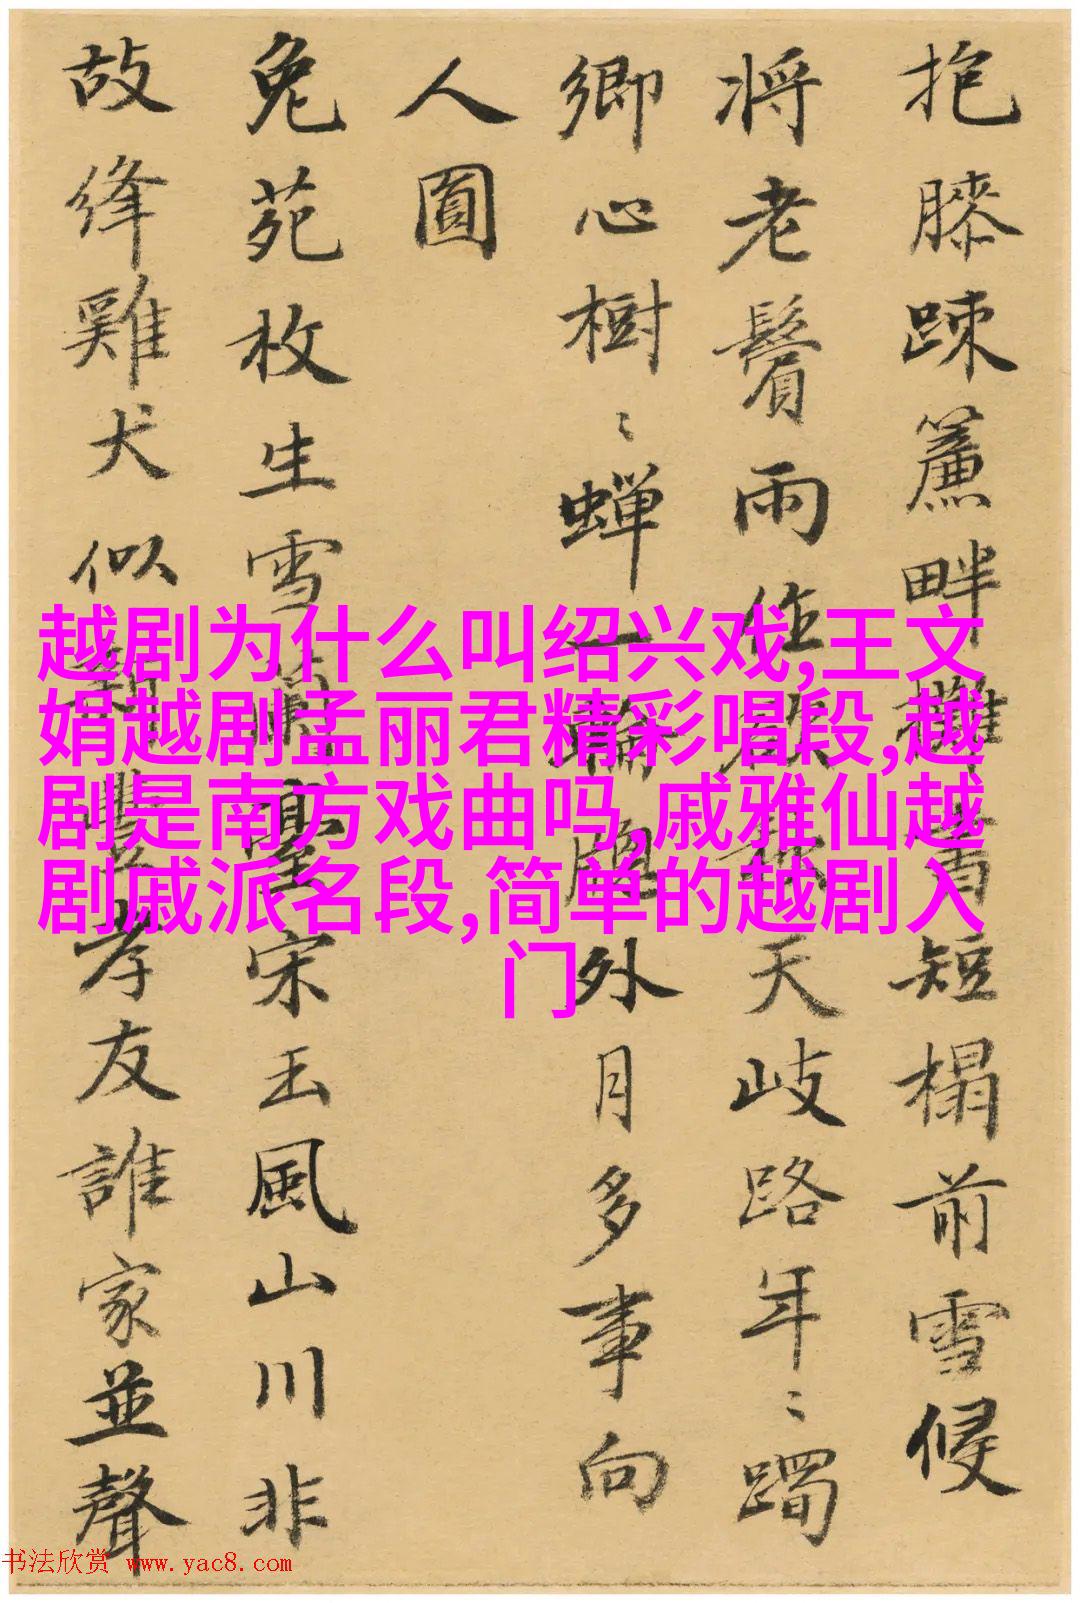 抱膝踈簾畔攤書短榻前雪候
将老鬢雨作天岐路年〻躅
卿心樹〻蟬一輪牕外月多事向
人圓
兔苑枚生雪蘭臺宋玉風山川非
故绛雞犬似新豐孝友誰家並聲
越剧为什么叫绍兴戏,王文
娟越剧孟丽君精彩唱段,越
剧是南方戏曲吗,戚雅仙越
剧戚派名段,简单的越剧入
门
书法欣赏 www.yac8.com